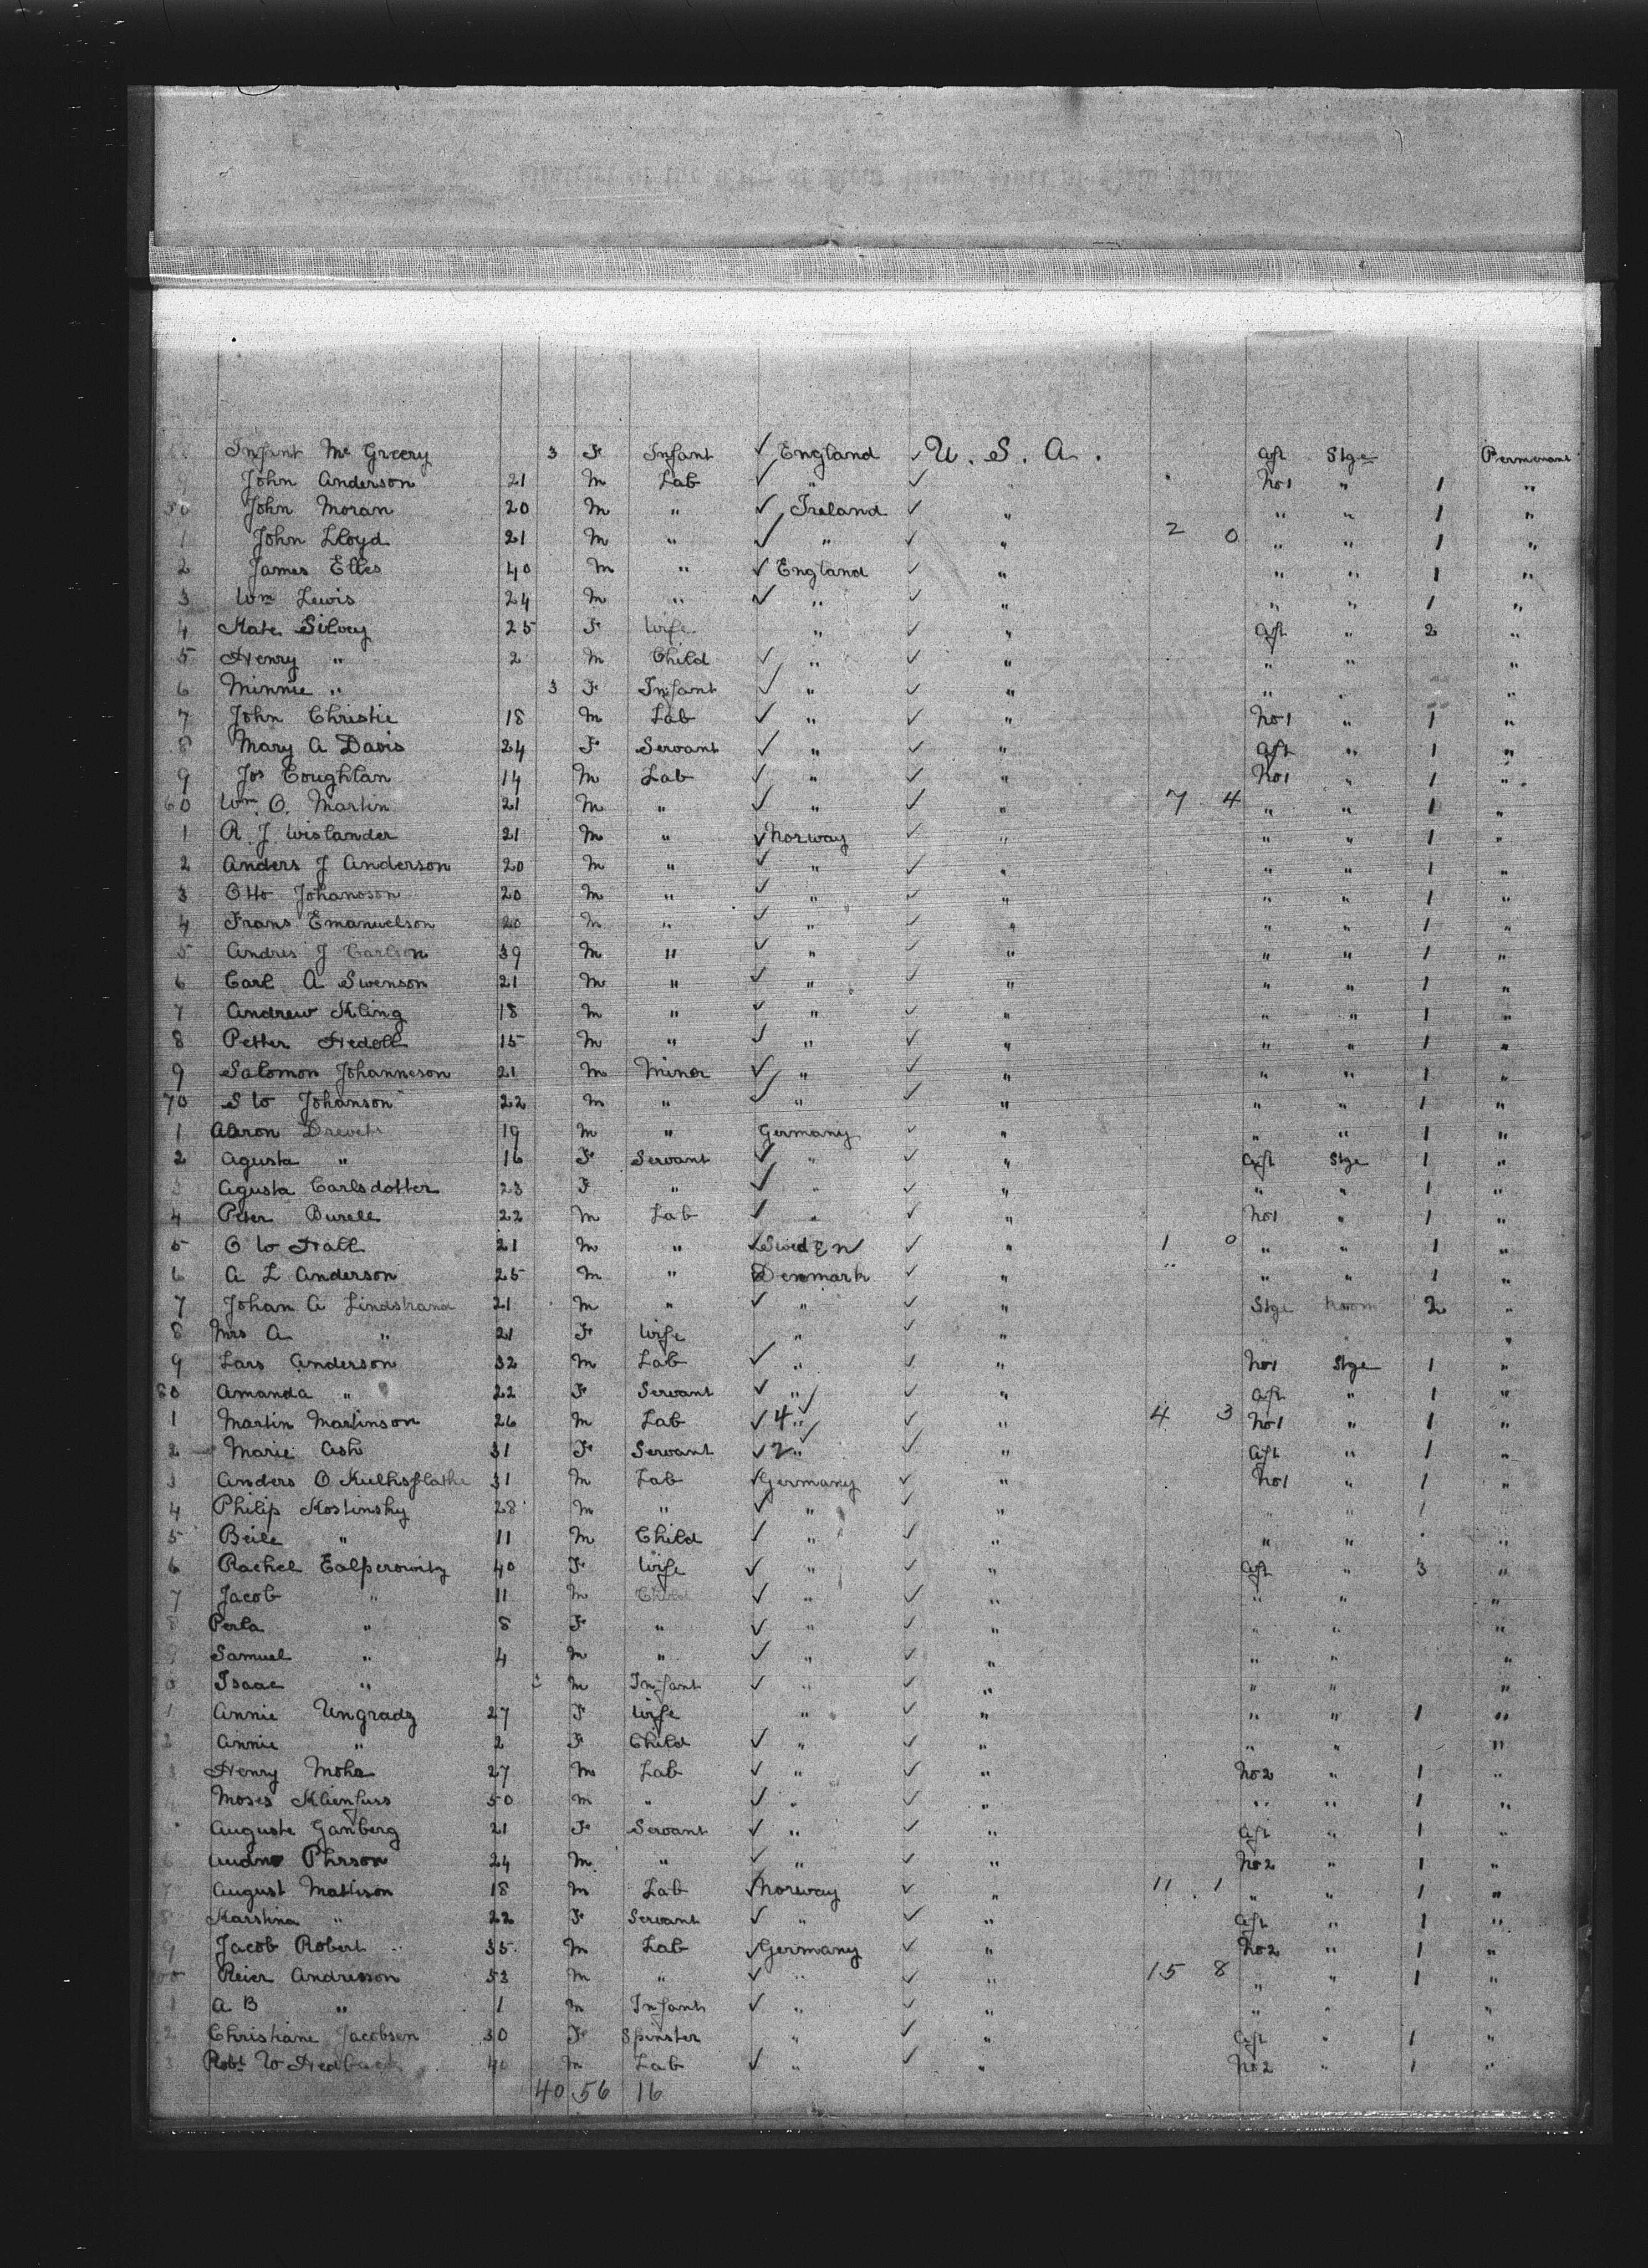 Infant Mc Greery 3 F Infant ✓ England ✓ U. S. A. Aft Stge Permenant
9 John Anderson 21 M Lab ✓ " ✓ " No1 " 1 "
50 John Moran 20 M " ✓ Ireland ✓ " " " 1 "
1 John Lloyd 21 M " ✓ " ✓ " 2 0 " " 1 "
2 James Elles 40 M " ✓ England ✓ " " " 1 "
3 Wm Lewis 24 M " ✓ " ✓ " " " 1 "
4 Kate Silvey 25 F Wife " ✓ " Aft " 2 "
5 Henry " 2 M Child ✓ " ✓ " " " "
6 Minnie " 3 F Infant ✓ " ✓ " " " "
7 John Christie 18 M Lab ✓ " ✓ " No1 " 1 "
8 Mary A Davis 24 F Servant ✓ " ✓ " Aft " 1 "
9 Jos Coughlan 14 M Lab ✓ " ✓ " No1 " 1 "
60 Wm O. Martin 21 M " ✓ " ✓ " 7 4 " " 1 "
1 A J Wislander 21 M " ✓ Norway ✓ " " " 1 "
2 Anders J Anderson 20 M " ✓ " ✓ " " " 1 "
3 Otto Johanoson 20 M " ✓ " ✓ " " " 1 "
4 Frans Emanuelson 20 M " ✓ " ✓ " " " 1 "
5 Andres J Carlson 39 M " ✓ " ✓ " " " 1 "
6 Carl A Swenson 21 M " ✓ " ✓ " " " 1 "
7 Andrew Kling 18 M " ✓ " ✓ " " " 1 "
8 Petter Hedoll 15 M " ✓ " ✓ " " " 1 "
9 Salomon Johanneson 21 M Minor ✓ " ✓ " " " 1 "
70 S W Johanson 22 M " ✓ " ✓ " " " 1 "
1 Aaron 19 M " Germany ✓ " " " 1 "
2 Agusta " 16 F Servant ✓ " ✓ " Aft Stge 1 "
3 Agusta Carlsdotter 23 F " ✓ " ✓ " " " 1 "
4 Peter Burell 22 M Lab ✓ " ✓ " No1 " 1 "
5 O W Hall 21 M " ✓ Sweden ✓ " 1 0 " " 1 "
6 A L Anderson 25 M " Denmark ✓ " " " 1 "
7 Johan A Lindstrand 21 M " ✓ " ✓ " Stge Room 2 "
8 Mrs A " 21 F Wife " ✓ " " " "
9 Lars Anderson 32 M Lab ✓ " ✓ " No1 Stge 1 "
80 Amanda " 22 F Servant ✓ " ✓ " Aft " 1 "
1 Martin Martinson 26 M Lab ✓ 4 " ✓ " 4 3 No1 " 1 "
2 Marie Ash 31 F Servant ✓ 2 " ✓ " Aft " 1 "
3 Anders O 31 M Lab ✓ Germany ✓ " No1 " 1 "
4 Philip Kostinsky 28 M " ✓ " ✓ " " " 1 "
5 Beile " 11 M Child ✓ " ✓ " " " "
6 Rachel Ealperowitz 40 F Wife ✓ " ✓ " Aft " 3 "
7 Jacob " 11 M Child ✓ " ✓ " " " "
8 Perla " 8 F " ✓ " ✓ " " " "
9 Samuel " 4 M " ✓ " ✓ " " " "
0 Isaac " M Infant ✓ " ✓ " " " "
1 Annie Ungradz 27 F Wife " ✓ " " " 1 "
2 Annie " 2 F Child ✓ " ✓ " " " "
3 Henry Mohr 27 M Lab ✓ " ✓ " No2 " 1 "
4 Moses Klienfuss 50 M " ✓ " ✓ " " " 1 "
Auguste Ganberg 21 F Servant ✓ " ✓ " Aft " 1 "
6 Phrson 24 M " ✓ " ✓ " No2 " 1 "
7 August Mattison 18 M Lab ✓ Norway ✓ " 11 1 " " 1 "
8 Karstina " 22 F Servant ✓ " ✓ " Aft " 1 "
9 Jacob Robert 35 M Lab ✓ Germany ✓ " No2 " 1 "
00 Reier Andresson 53 M " ✓ " ✓ " 15 8 " " 1 "
1 A B " 1 M Infant ✓ " ✓ " " " "
2 Christiane Jacobsen 30 F Spinster " ✓ " Aft " 1 "
3 Robt W 40 M Lab ✓ " ✓ " No2 " 1 "
40 56 16